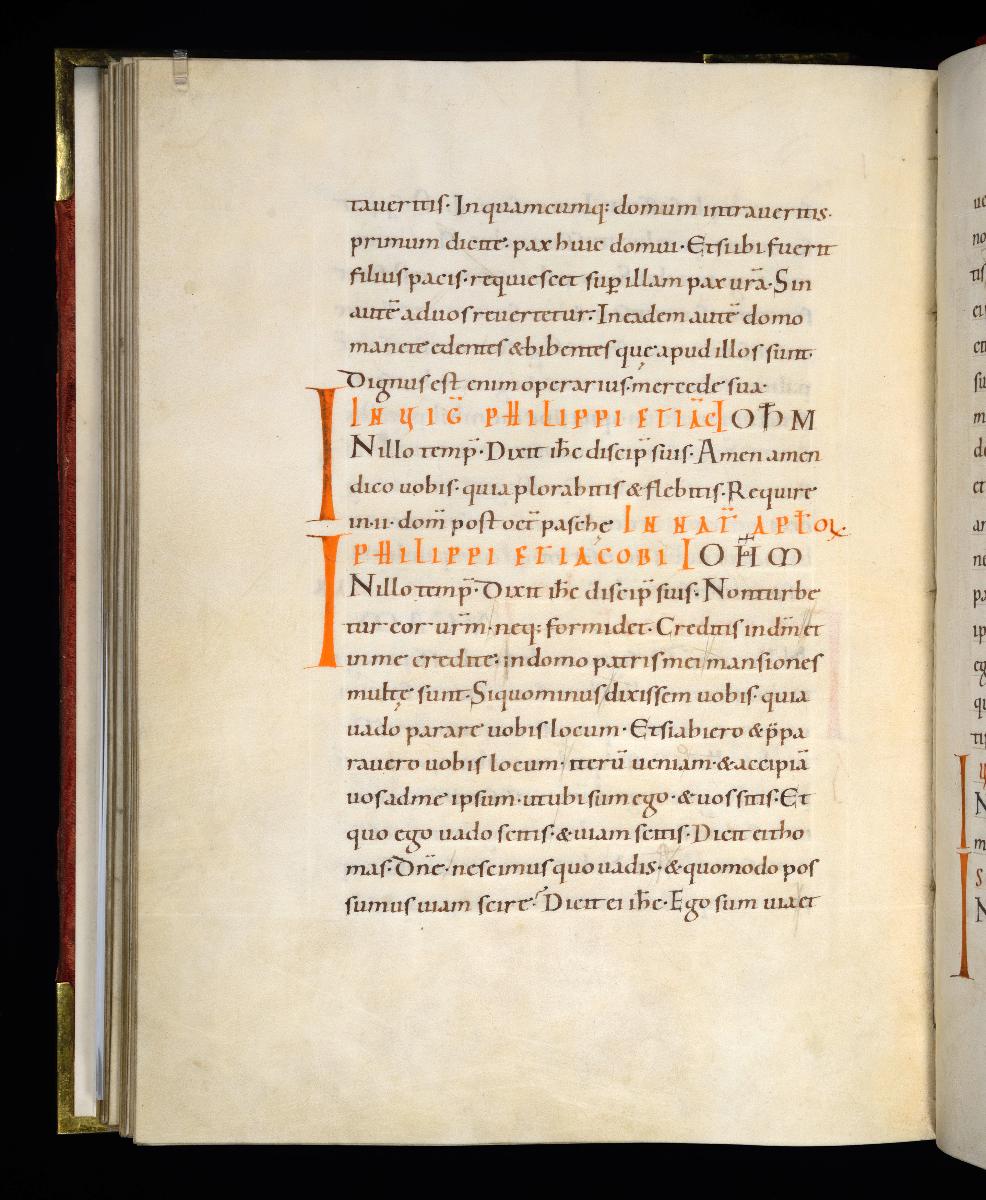 taueritis· In quamcumq: domum intraueritis·
primum dicite· pax huic domui· Et si ibi fuerit
filius pacis· requiescet sup illam pax urā· Sin
autē ad uos reuertetur· In eadem autē domo
manete edentes & bibentes quę apud illos sunt·
Dignus est enim operarius mercede sua·
IN UIG PHILIPPI ET IAC IOHM
INillo temp̄· Dixit ihc discip̄ suis· Amen amen
dico uobis· quia plorabitis & flebitis· Require
in·ii· dom̄ post oct̄ pasche IN NAT APLOR
PHILIPPI ET IACOBI IOHM
INillo temp̄· Dixit ihc discip̄ suis· Non turbe
tur cor urm̄· neq: formidet· Creditis in dm̄ et
in me credite· in domo patris mei mansiones
multę sunt· Si quo minus dixissem uobis· quia
uado parare uobis locum· Et si abiero & p̄pa
rauero uobis locum· iterū ueniam· & accipiā
uos ad me ipsum· ut ubi sum ego· & uos sitis· Et
quo ego uado scitis· & uiam scitis· Dicit ei tho
mas· Dn̄e· nescimus quo uadis· & quomodo pos
sumus uiam scire? Dicit ei ihc· Ego sum uia et